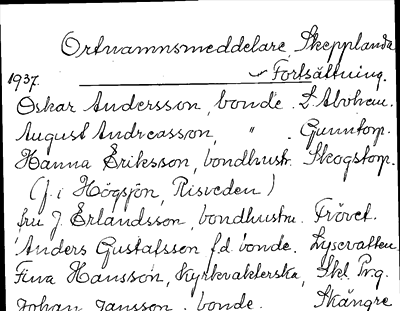 Ortnamnsmeddelare Skepplanda
Fortsättning.
1937.
Oskar Andersson, bonde. St. Aboheu.
August Andreasson, " . Gunntorp.
Hanna Eriksson, bondhustr. Skogstorp.
(f. i Högsjön, Risveden)
fru J. Erlandsson, bondhustru. Trövet.
Anders Gustafsson f.d. bonde. Lysevatten
Fina Hansson, Kyrkvakterska, Skl. Prg.
Johan Jansson . bonde. Skängre